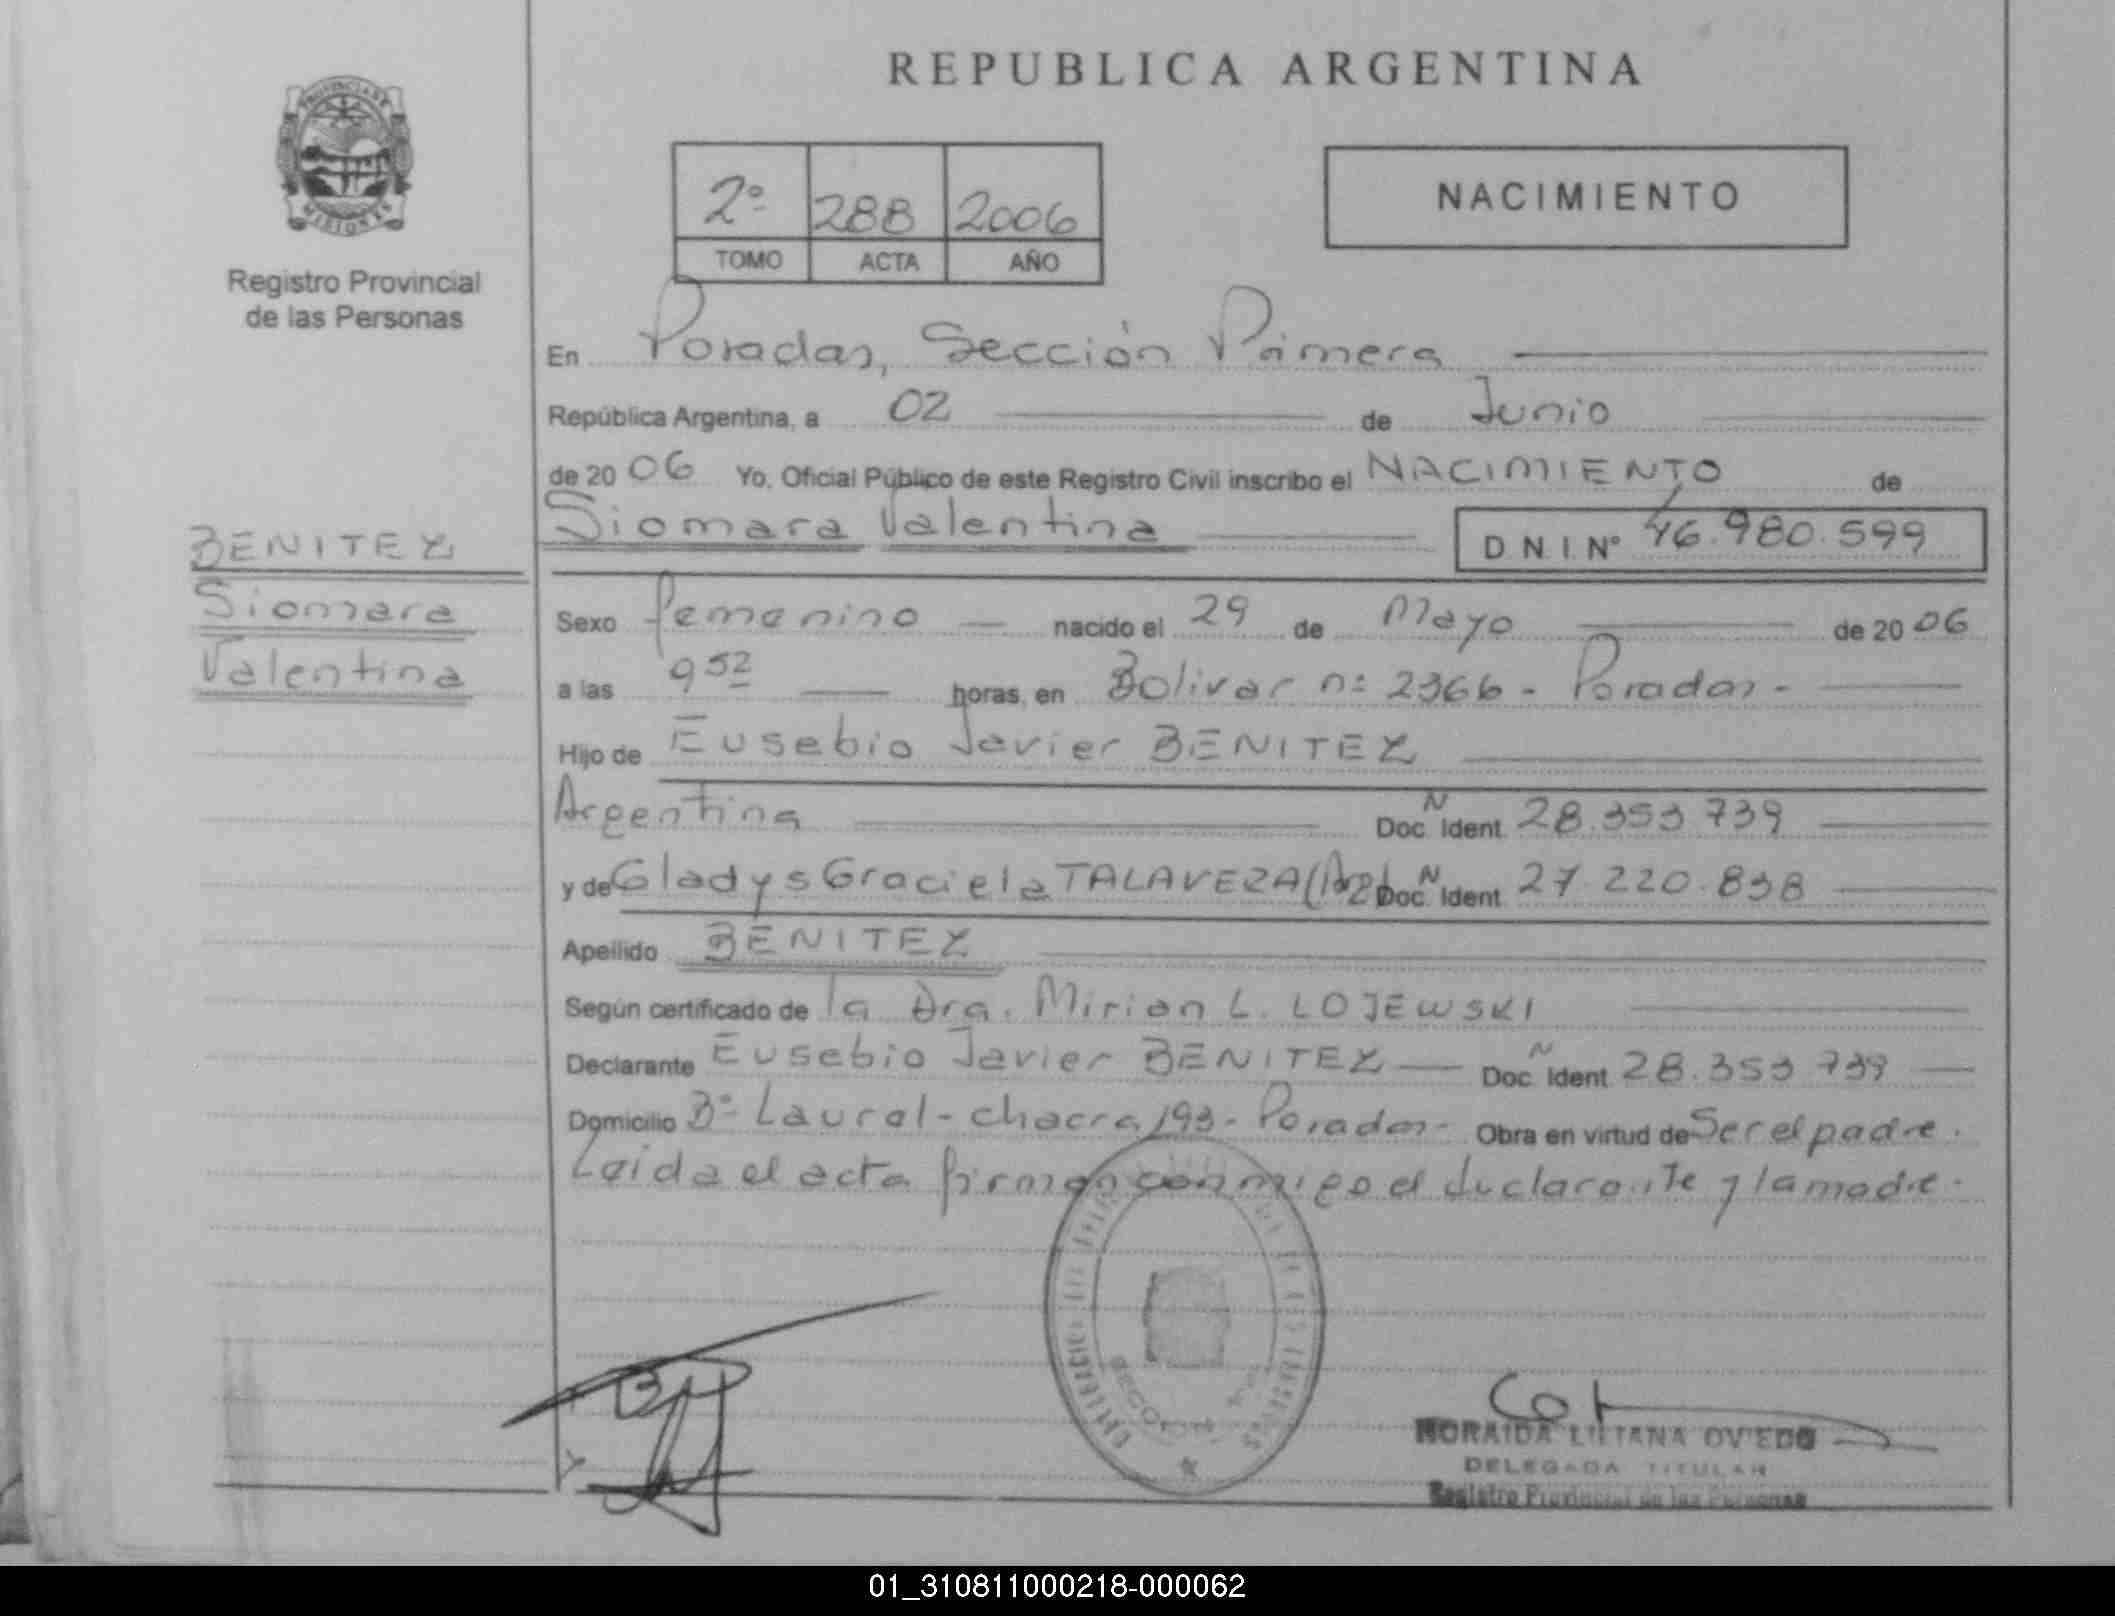 REPUBLICA ARGENTINA
PROVINCIA DE
MISIONES
Registro Provincial
de las Personas
2º 288 2006
TOMO ACTA AÑO
NACIMIENTO
En Posadas, Sección Primera
República Argentina, a 02 de Junio
de 20 06 Yo, Oficial Público de este Registro Civil inscribo el NACIMIENTO de
Siomara Valentina D.N.I. Nº 46.980.599
BENITEZ
Siomara
Valentina
Sexo femenino nacido el 29 de Mayo de 20 06
a las 9 52 horas, en Bolivar nº 2366 - Posadas -
Hijo de Eusebio Javier BENITEZ
Argentina Doc. N Ident. 28.353.739
y de Gladys Graciela TALAVERA (Arg) Doc. N Ident. 27.220.838
Apellido BENITEZ
Según certificado de la Dra. Mirian L. LOJEWSKI
Declarante Eusebio Javier BENITEZ Doc. N Ident. 28.353.739
Domicilio Bº Laurel - chacra 193 - Posadas - Obra en virtud de Ser el padre.
Leída el acta firman conmigo el declarante y la madre.
LILIANA OVIEDO
DELEGADA TITULAR
Registro Provincial de las Personas
01_310811000218-000062